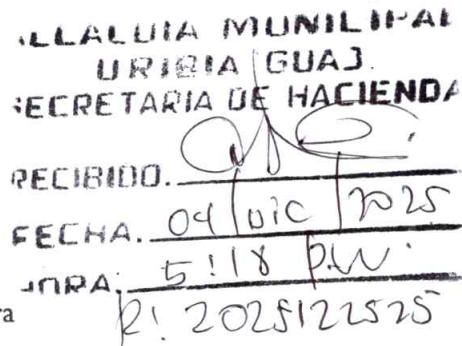 ALCALDIA MUNICIPAL
URIBIA GUAJ.
SECRETARIA DE HACIENDA
RECIBIDO.
FECHA. 04 DIC 2025
HORA: 5:18 P.M.
ra
R: 2025122525